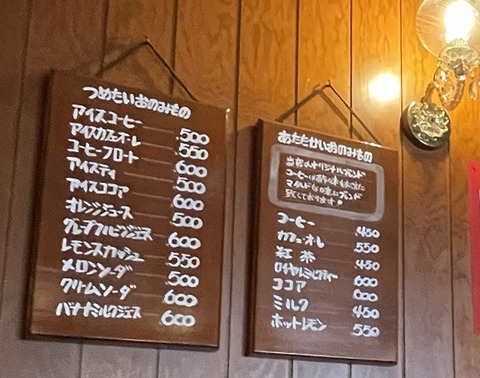 つめたいおのみもの
アイスコーヒー 500
アイスカフェオーレ 550
コーヒーフロート 600
アイスティ 500
アイスココア 600
オレンジジュース 500
グレープフルーツジュース 600
レモンスカッシュ 550
メロンソーダ 500
クリームソーダ 600
バナナミルクジュース 600
あたたかいおのみもの
当店のオリジナルブレンド
コーヒーは
マイルドな味にブレンド
致しております
コーヒー 450
カフェオーレ 550
紅茶 450
ロイヤルミルクティー 600
ココア 600
ミルク 450
ホットレモン 550